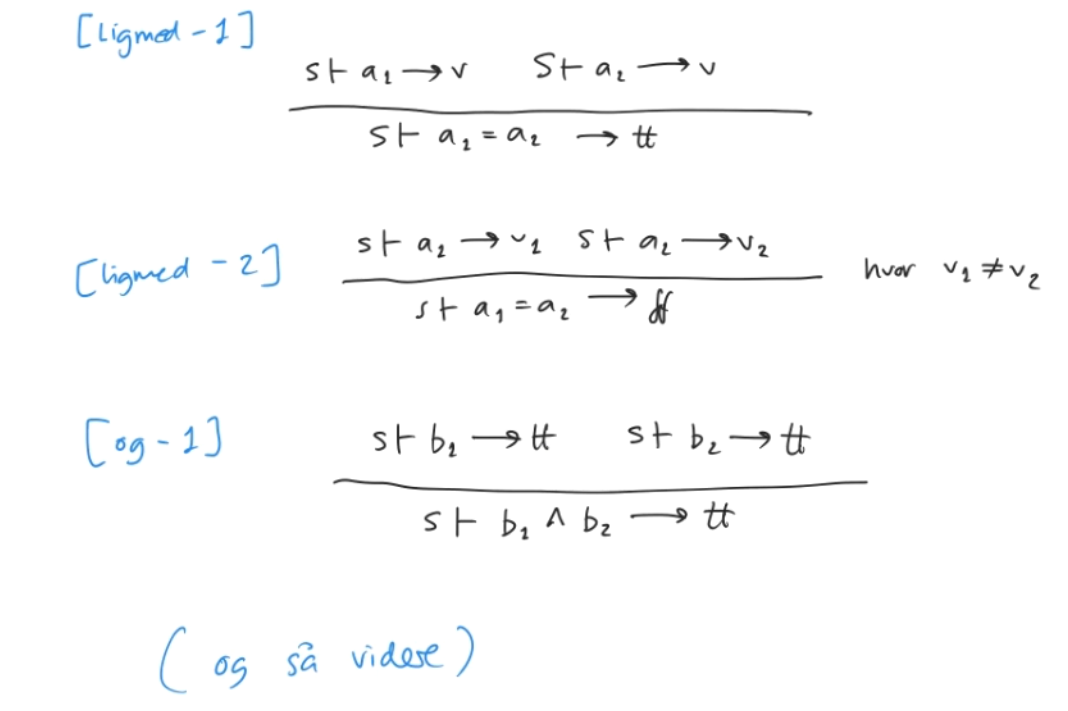 [Ligmed - 1]
s ⊢ a₁ → v   s ⊢ a₂ → v
s ⊢ a₁ = a₂ → tt
[ligmed - 2]
s ⊢ a₁ → v₁   s ⊢ a₂ → v₂   hvor v₁ ≠ v₂
s ⊢ a₁ = a₂ → ff
[og - 1]
s ⊢ b₁ → tt   s ⊢ b₂ → tt
s ⊢ b₁ ∧ b₂ → tt
(og så videre)